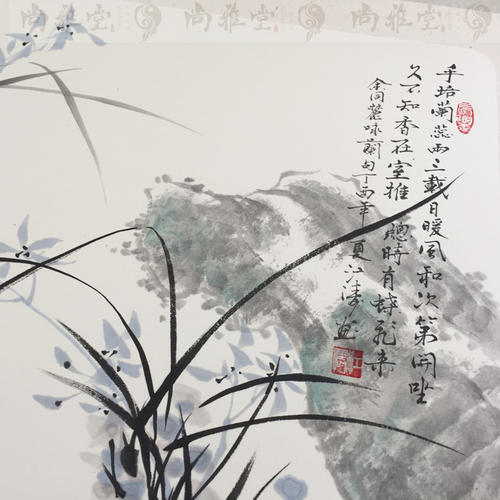 尚雅堂 尚雅堂
手培蘭蕊兩三載日暖風和次第開坐
久不知香在室推窻時有蝶飛來
余同麓咏蘭句丁酉年夏江濤画